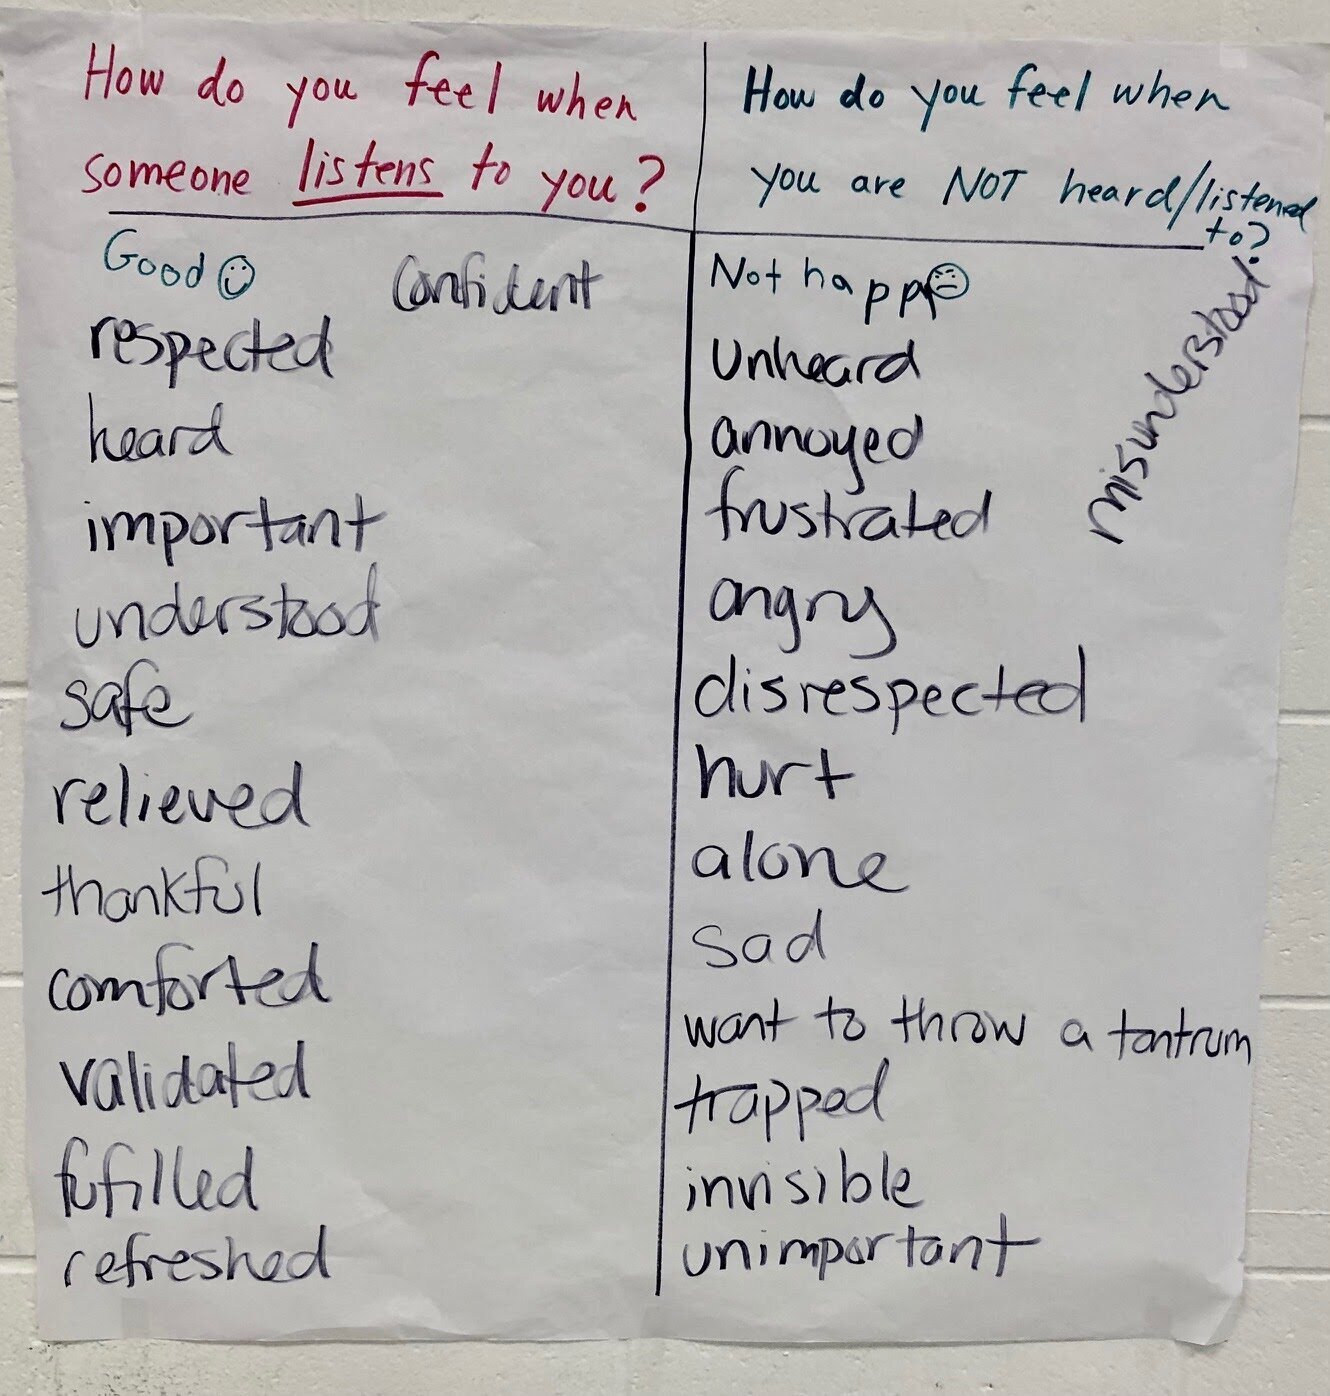 How do you feel when
someone listens to you?
Good
Confident
respected
heard
important
understood
safe
relieved
thankful
comforted
validated
fufilled
refreshed
How do you feel when
you are NOT heard/listened
to?
Not happy
unheard
annoyed
frustrated
angry
disrespected
hurt
alone
sad
want to throw a tantrum
trapped
invisible
unimportant
misunderstood